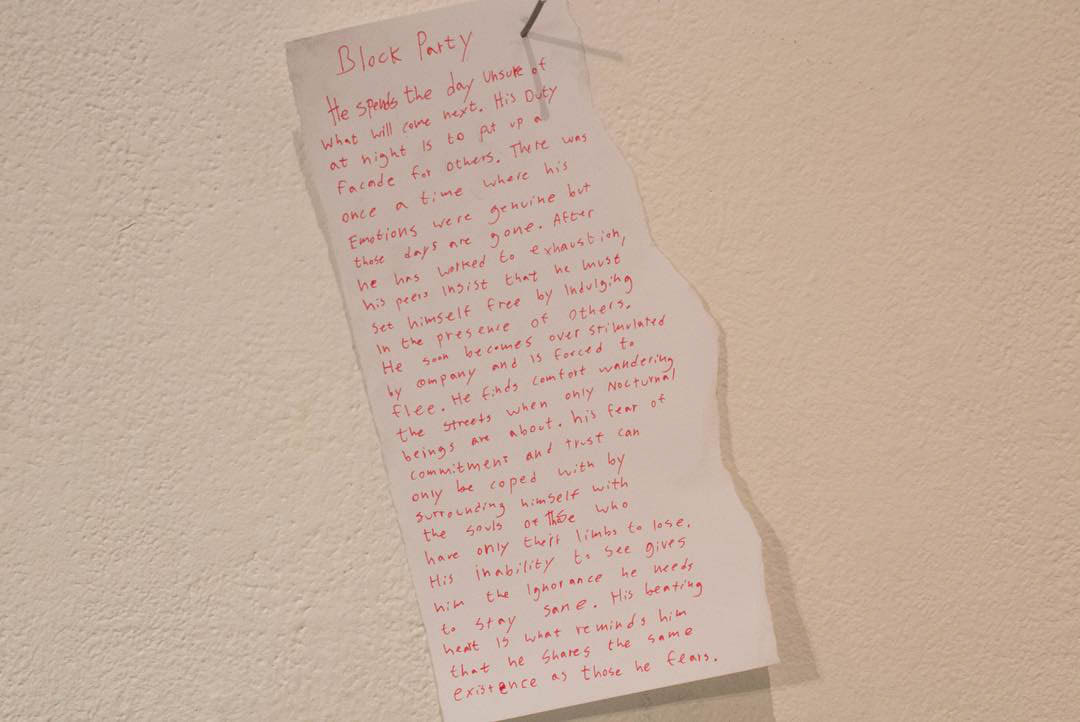 Block Party
He spends the day unsure of
what will come next. His Duty
at night Is to put up a
Facade for others. There was
once a time where his
Emotions were genuine but
those days are gone. After
he has worked to exhaustion,
his peers Insist that he must
set himself free by Indulging
In the presence of others.
He soon becomes over stimulated
by company and Is forced to
flee. He finds comfort wandering
the streets when only Nocturnal
beings are about. his fear of
commitment and trust can
only be coped with by
surrounding himself with
the souls of those who
have only their limbs to lose.
His inability to see gives
him the Ignorance he needs
to stay sane. His beating
heart Is what reminds him
that he shares the same
existence as those he fears.